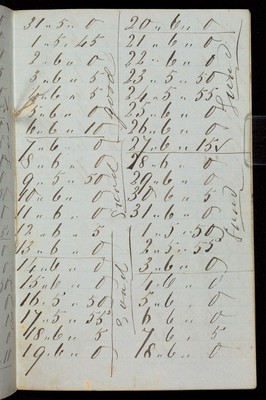 31 " 5 " 0
1 " 5 " 45
2 " 6 " 0
3 " 6 " 5
4 " 6 " 5
5 " 6 " 0
6 " 6 " 10
7 " 6 " 0
8 " 6 " 0
9 " 5 " 50
10 " 6 " 0
11 " 6 " 0
12 " 6 " 5
13 " 6 " 0
14 " 6 " 0
15 " 6 " 0
16 " 5 " 50
17 " 5 " 55
18 " 6 " 5
19 " 6 " 0
good
good
20 " 6 " 0
21 " 6 " 0
22 " 6 " 0
23 " 5 " 50
24 " 5 " 55
25 " 6 " 0
26 " 6 " 0
27 " 6 " 15
28 " 6 " 0
29 " 6 " 0
30 " 6 " 5
31 " 6 " 0
1 " 5 " 50
2 " 5 " 55
3 " 6 " 0
4 " 6 " 0
5 " 6 " 0
6 " 6 " 0
7 " 6 " 5
8 " 6 " 0